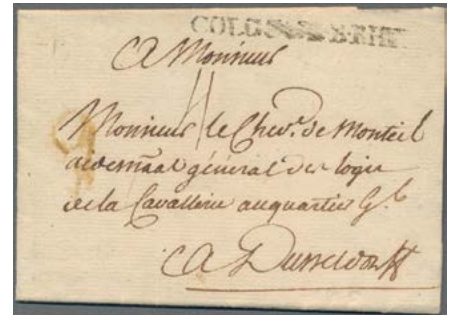 A Monsieur
Monsieur le Chevr. de Monteil
aide mãal général des logis
de la Cavallerie au quartier Gl.
A Dusseldorff